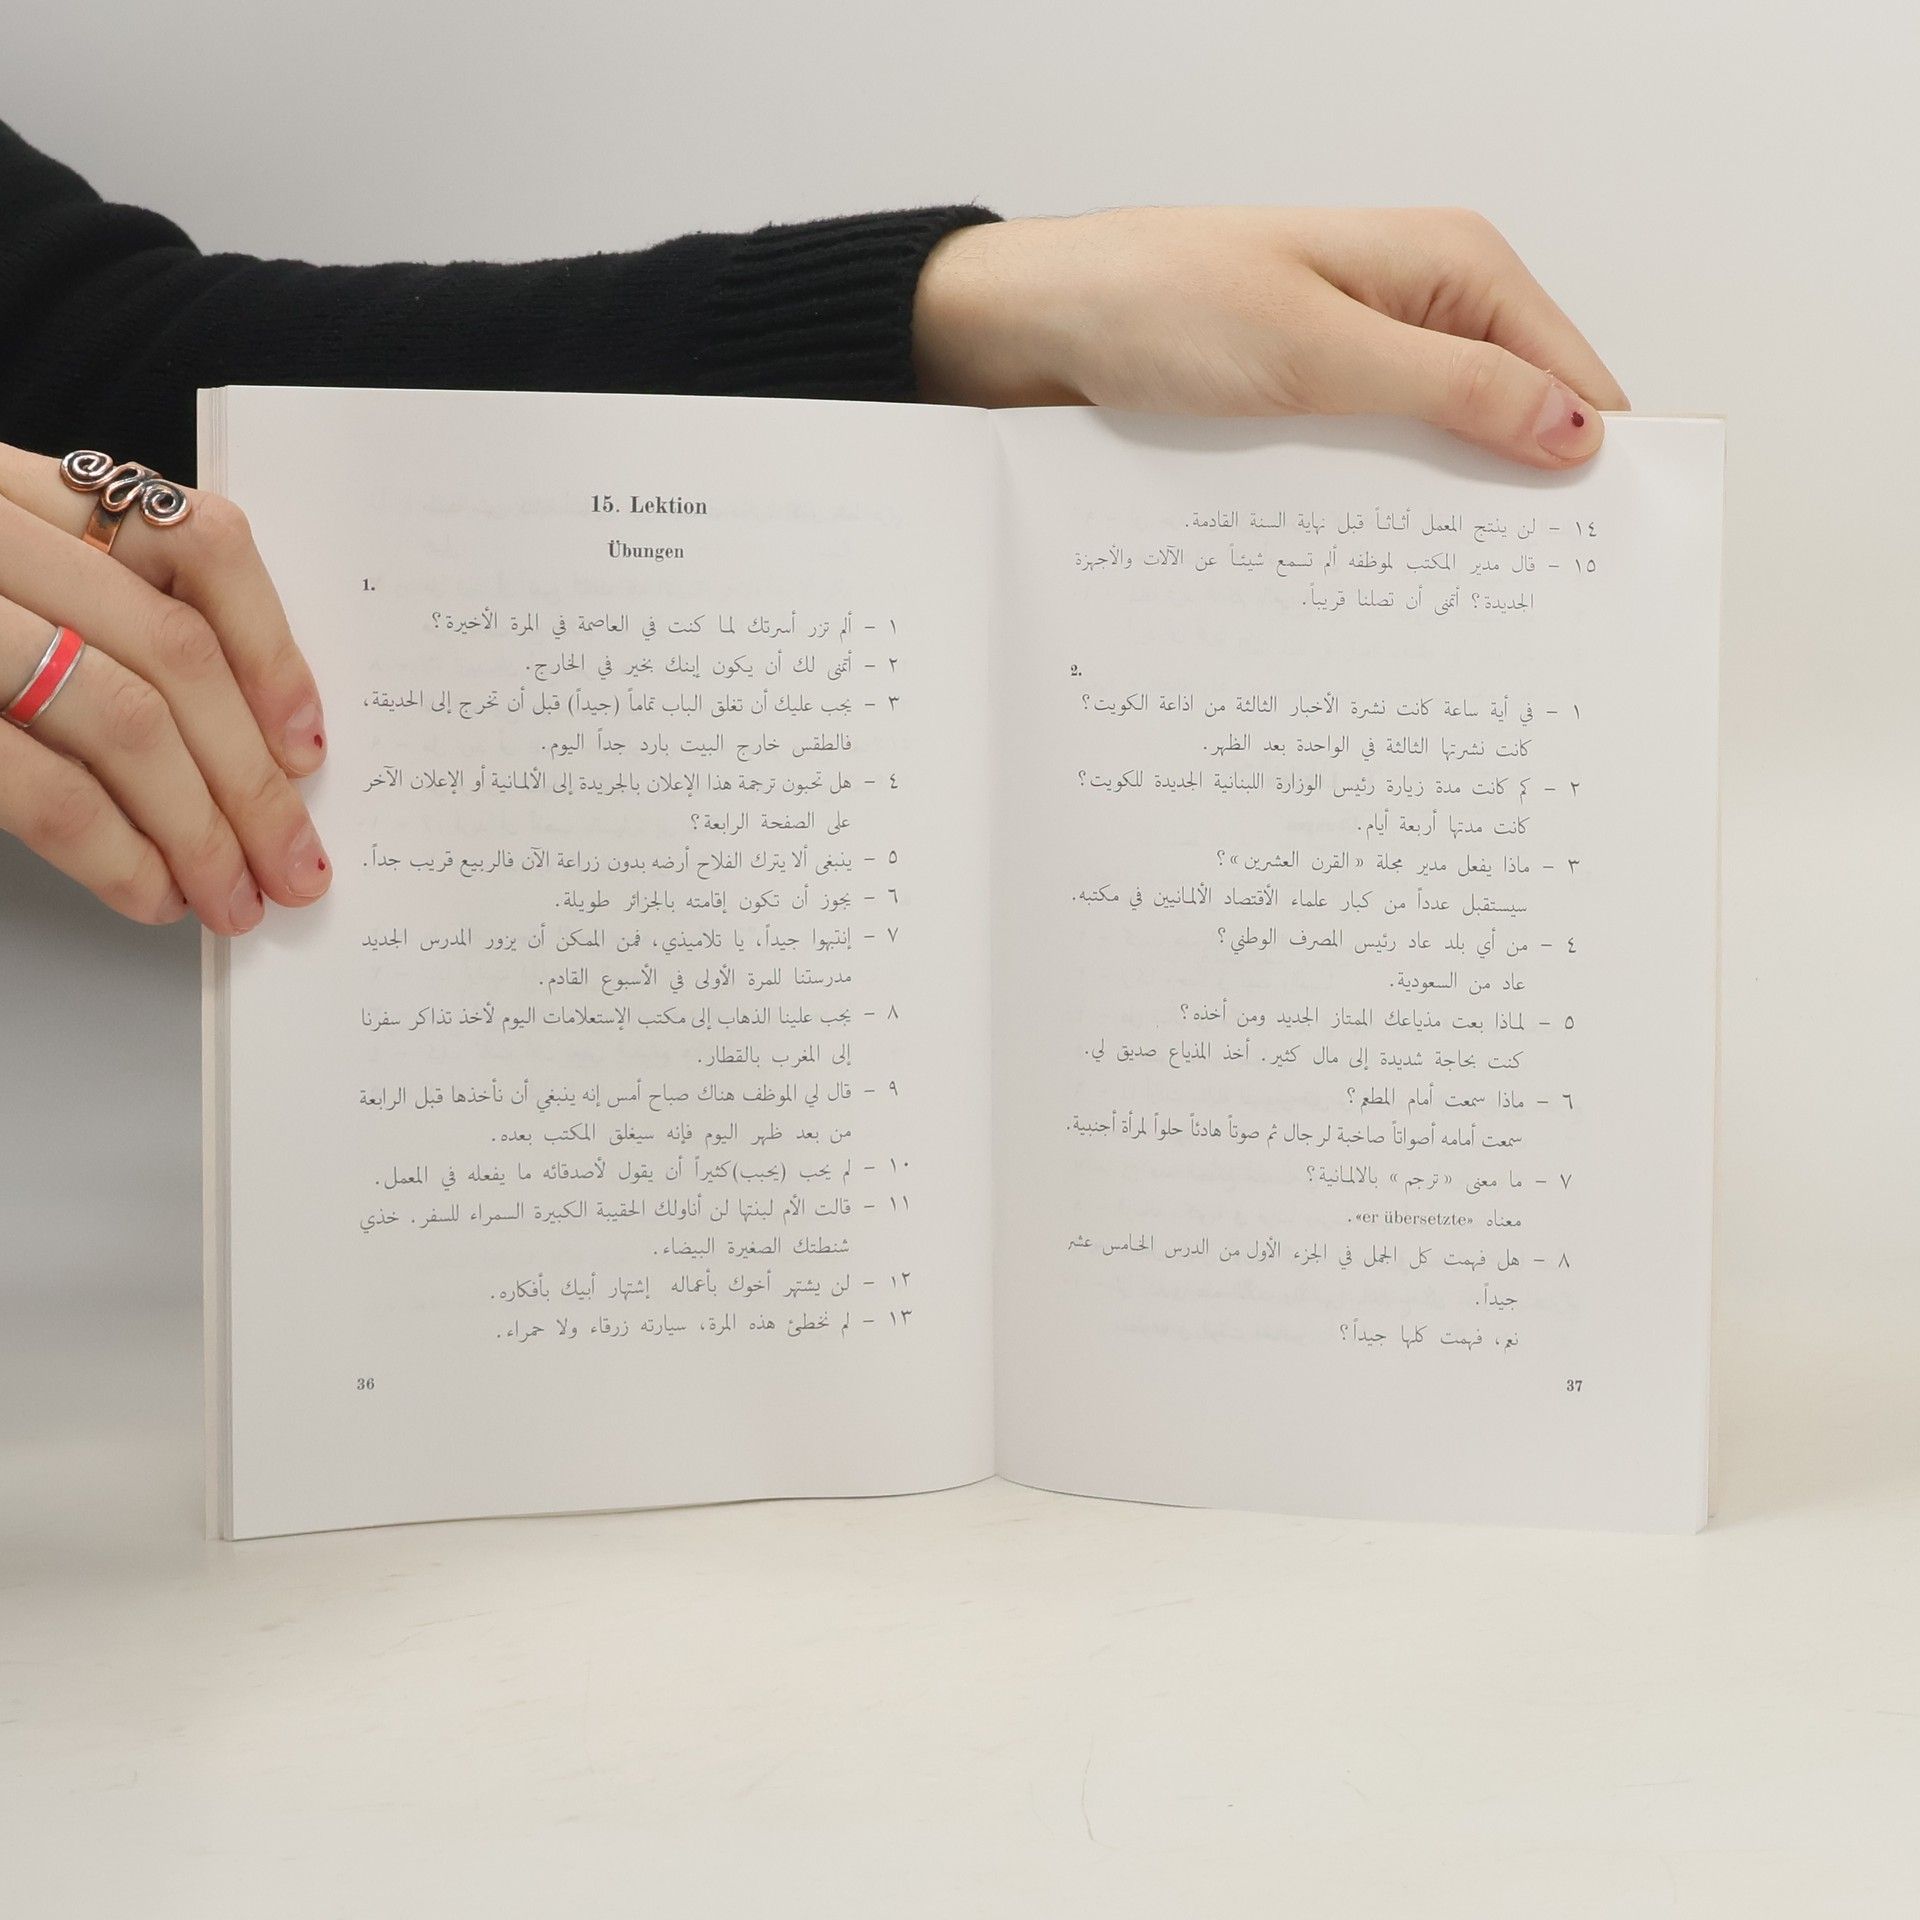 15. Lektion
Übungen
1.
١ – ألم تزر أسرتك لما كنت في العاصمة في المرة الأخيرة؟
٢ – أتمنى لك أن يكون إبنك بخير في الخارج.
٣ – يجب عليك أن تغلق الباب تماماً (جيداً) قبل أن تخرج إلى الحديقة،
فالطقس خارج البيت بارد جداً اليوم.
٤ – هل تحبون ترجمة هذا الإعلان بالجريدة إلى الألمانية أو الإعلان الآخر
على الصفحة الرابعة؟
٥ – ينبغى ألا يترك الفلاح أرضه بدون زراعة الآن فالربيع قريب جداً.
٦ – يجوز أن تكون إقامته بالجزائر طويلة.
٧ – إنتبهوا جيداً، يا تلاميذي، فمن الممكن أن يزور المدرس الجديد
مدرستنا للمرة الأولى في الأسبوع القادم.
٨ – يجب علينا الذهاب إلى مكتب الإستعلامات اليوم لأخذ تذاكر سفرنا
إلى المغرب بالقطار.
٩ – قال لي الموظف هناك صباح أمس إنه ينبغي أن نأخذها قبل الرابعة
من بعد ظهر اليوم فإنه سيغلق المكتب بعده.
١٠ – لم يحب (يحبب) كثيراً أن يقول لأصدقائه ما يفعله في المعمل.
١١ – قالت الأم لبنتها لن أناولك الحقيبة الكبيرة السمراء للسفر. خذي
شنطتك الصغيرة البيضاء.
١٢ – لن يشتهر أخوك بأعماله إشتهار أبيك بأفكاره.
١٣ – لم نخطئ هذه المرة، سيارته زرقاء ولا حمراء.
36
١٤ – لن ينتج المعمل أثاثاً قبل نهاية السنة القادمة.
١٥ – قال مدير المكتب لموظفه ألم تسمع شيئاً عن الآلات والأجهزة
الجديدة؟ أتمنى أن تصلنا قريباً.
2.
١ – في أية ساعة كانت نشرة الأخبار الثالثة من اذاعة الكويت؟
كانت نشرتها الثالثة في الواحدة بعد الظهر.
٢ – كم كانت مدة زيارة رئيس الوزارة اللبنانية الجديدة للكويت؟
كانت مدتها أربعة أيام.
٣ – ماذا يفعل مدير مجلة «القرن العشرين»؟
سيستقبل عدداً من كبار علماء الأقتصاد الألمانيين في مكتبه.
٤ – من أي بلد عاد رئيس المصرف الوطني؟
عاد من السعودية.
٥ – لماذا بعت مذياعك الممتاز الجديد ومن أخذه؟
كنت بحاجة شديدة إلى مال كثير. أخذ المذياع صديق لي.
٦ – ماذا سمعت أمام المطعم؟
سمعت أمامه أصواتاً صاخبة لرجال ثم صوتاً هادئاً حلواً لمرأة أجنبية.
٧ – ما معنى «ترجم» بالالمانية؟
معناه «er übersetzte».
٨ – هل فهمت كل الجمل في الجزء الأول من الدرس الخامس عشر
جيداً.
نعم، فهمت كلها جيداً؟
37